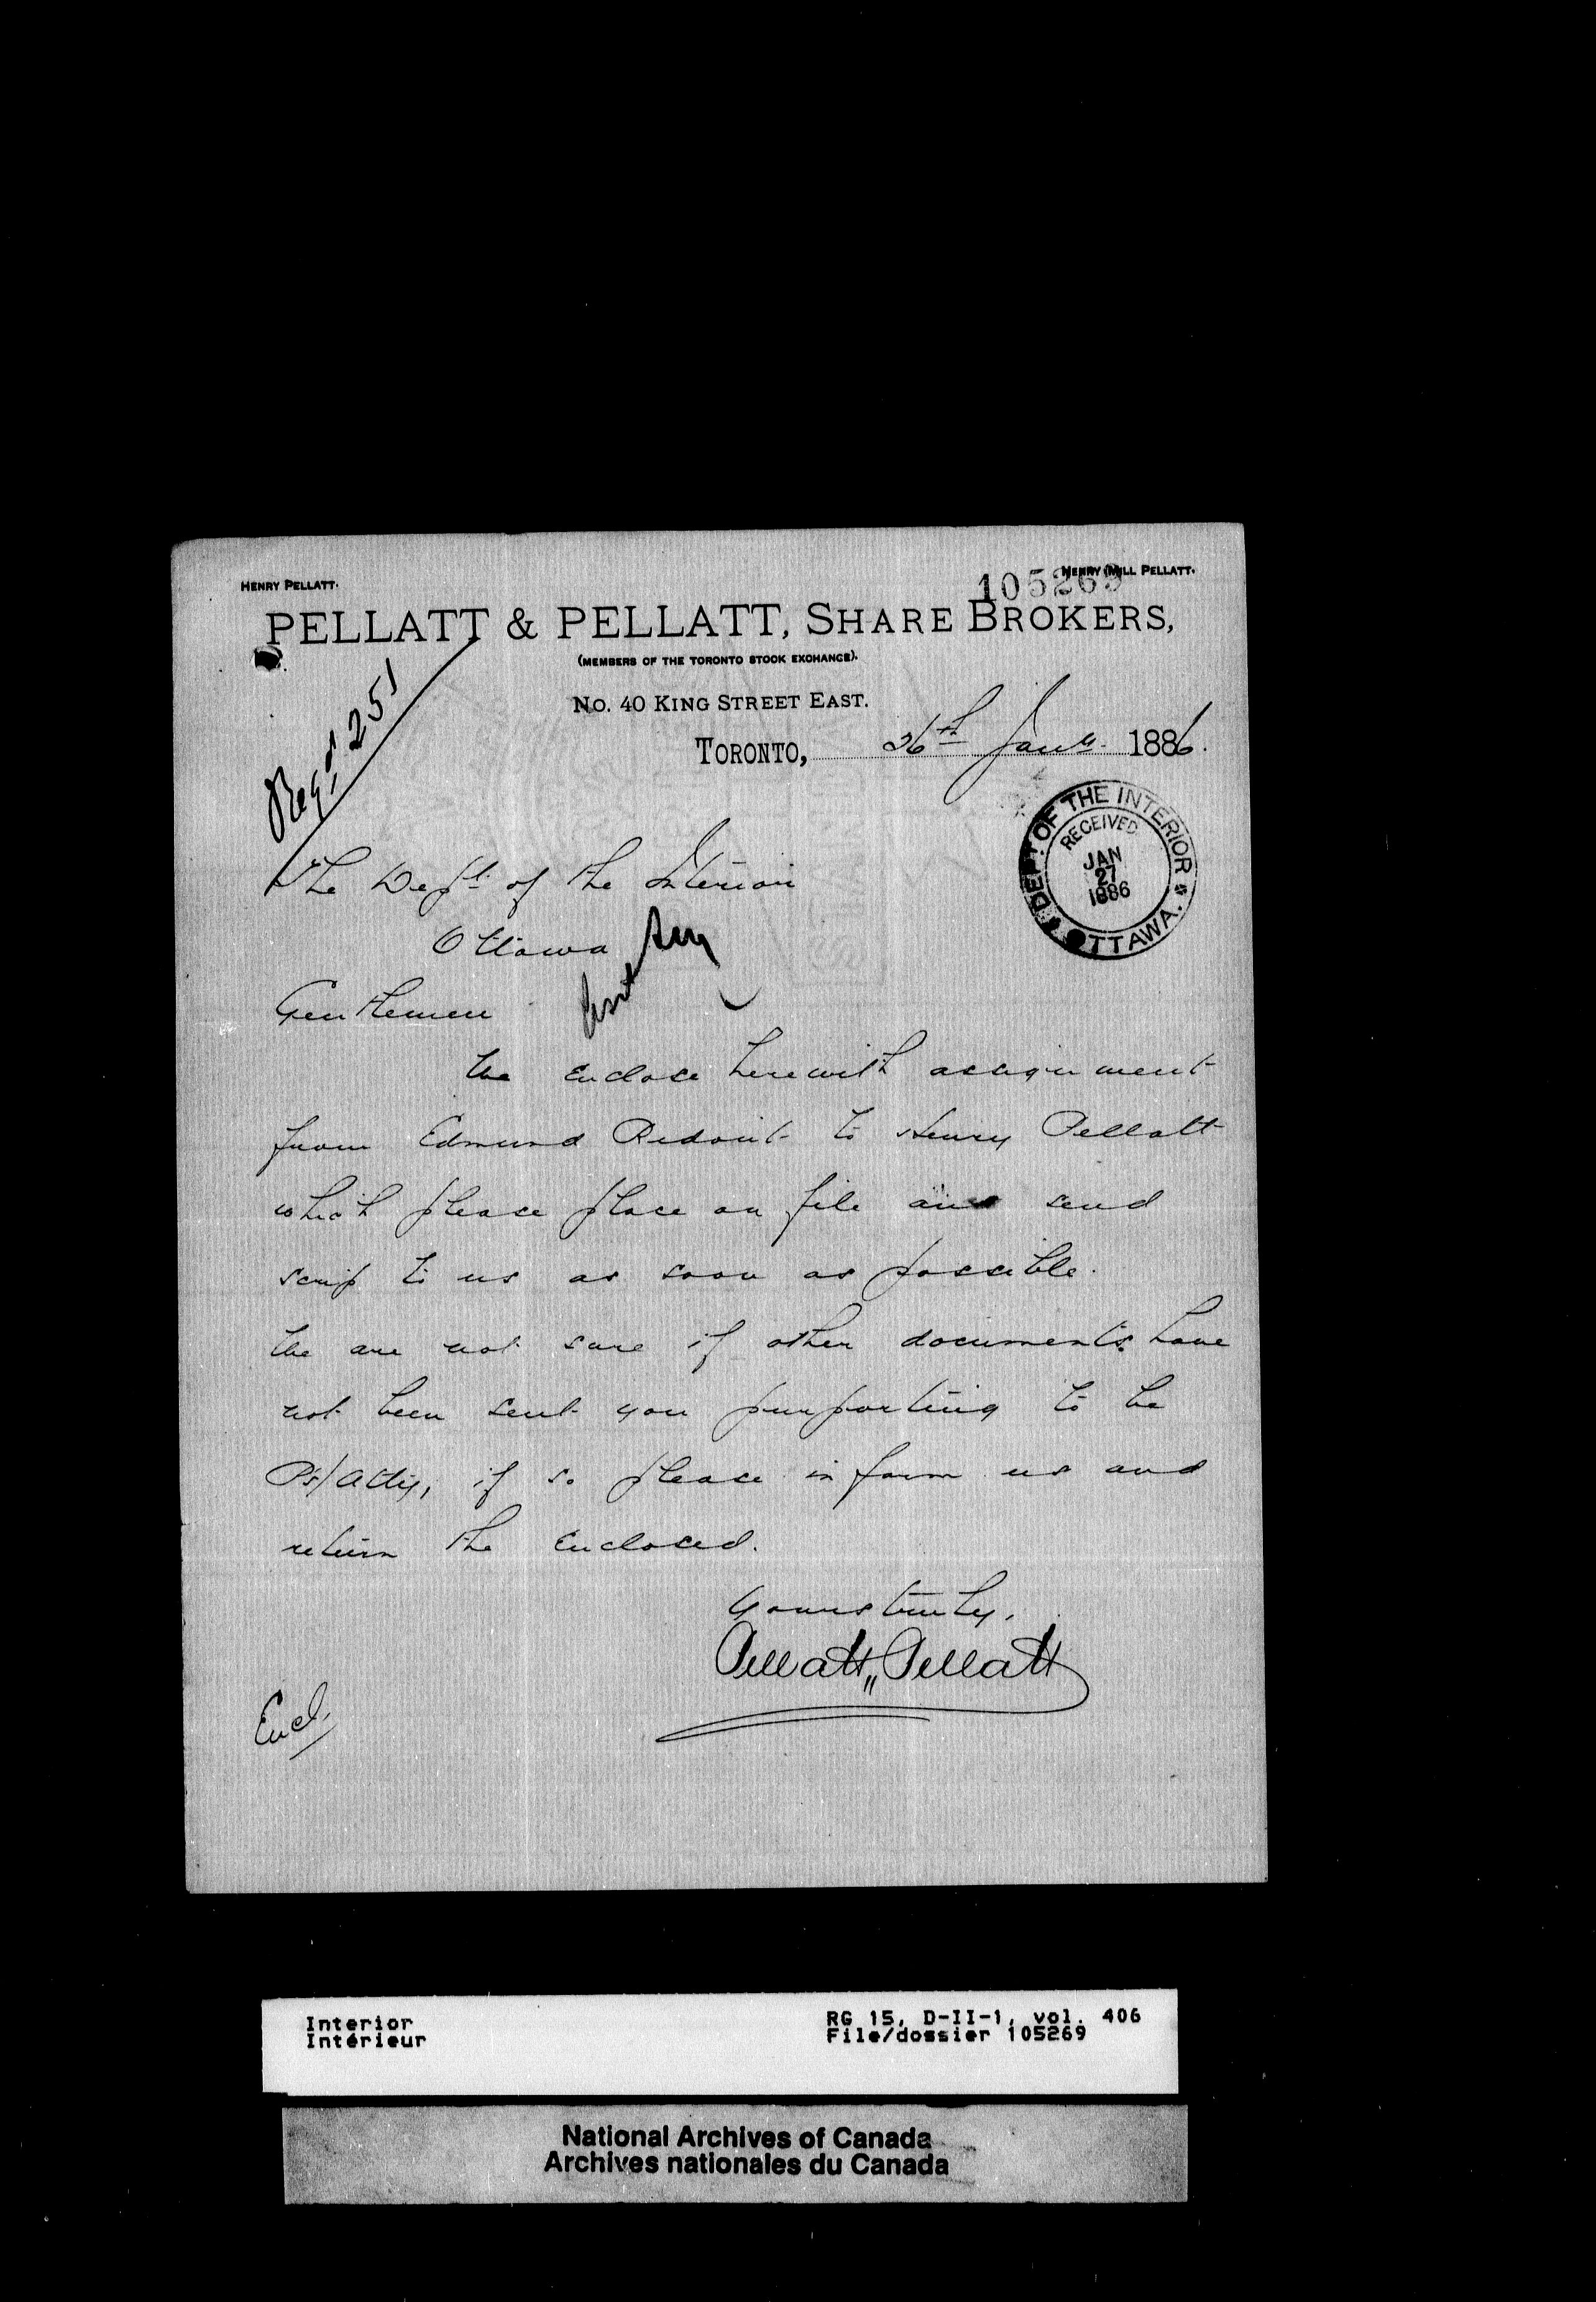 HENRY PELLATT.
HENRY MILL PELLATT.
105269
PELLATT & PELLATT, SHARE BROKERS,
(MEMBERS OF THE TORONTO STOCK EXCHANGE).
No. 40 KING STREET EAST.
TORONTO, 26th Jany 1886.
Regd 251
DEPT OF THE INTERIOR
RECEIVED
JAN
27
1886
OTTAWA.
The Dept of the Interior
Ottawa
Gentlemen
We Enclose herewith assignment
from Edmund Ridout to Henry Pellatt
which please place on file and send
scrip to us as soon as possible.
We are not sure if other documents have
not been sent you purporting to be
Ps/Atty, if so please inform us and
return the Enclosed.
Yours truly,
Pellatt " Pellatt
Encl.
Interior
Intérieur
RG 15, D-II-1, vol. 406
File/dossier 105269
National Archives of Canada
Archives nationales du Canada